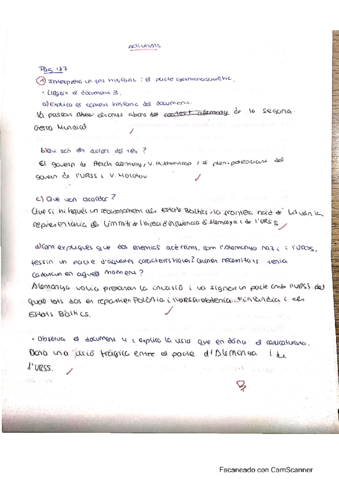 activitats
Pàg 137
① Interpretem un fet històric: el pacte germanosoviètic.
· Llegeix el document 3.
a) Explica el context històric del document.
Va passar dies abans de la segona
Gerra Mundial
b) Qui són els autors del text?
El govern de Reich alemany, V. Autentica i el plenipotenciari del
govern de l'URSS V. Molotov
c) Què van acordar?
Que si hi hagués un reordenament als Estats Bàltics la frontera nord de Lituània
representaria el límit de l'àrea d'influència d'Alemanya i de l'URSS
d) Com expliques que dos enemics acèrrims, com l'Alemanya nazi i l'URSS,
fessin un pacte d'aquestes característiques? Quines necessitats tenia
cadascun en aquell moment?
Alemanya volia preparar la invasió i va signar un pacte amb l'URSS del
qual tots dos es repartien Polònia i Finlàndia i els
Estats Bàltics.
· Observa el document 4 i explica la visió que en dóna el caricaturista.
Dona una visió tràgica entre el pacte d'Alemanya i de
l'URSS.
Escaneado con CamScanner